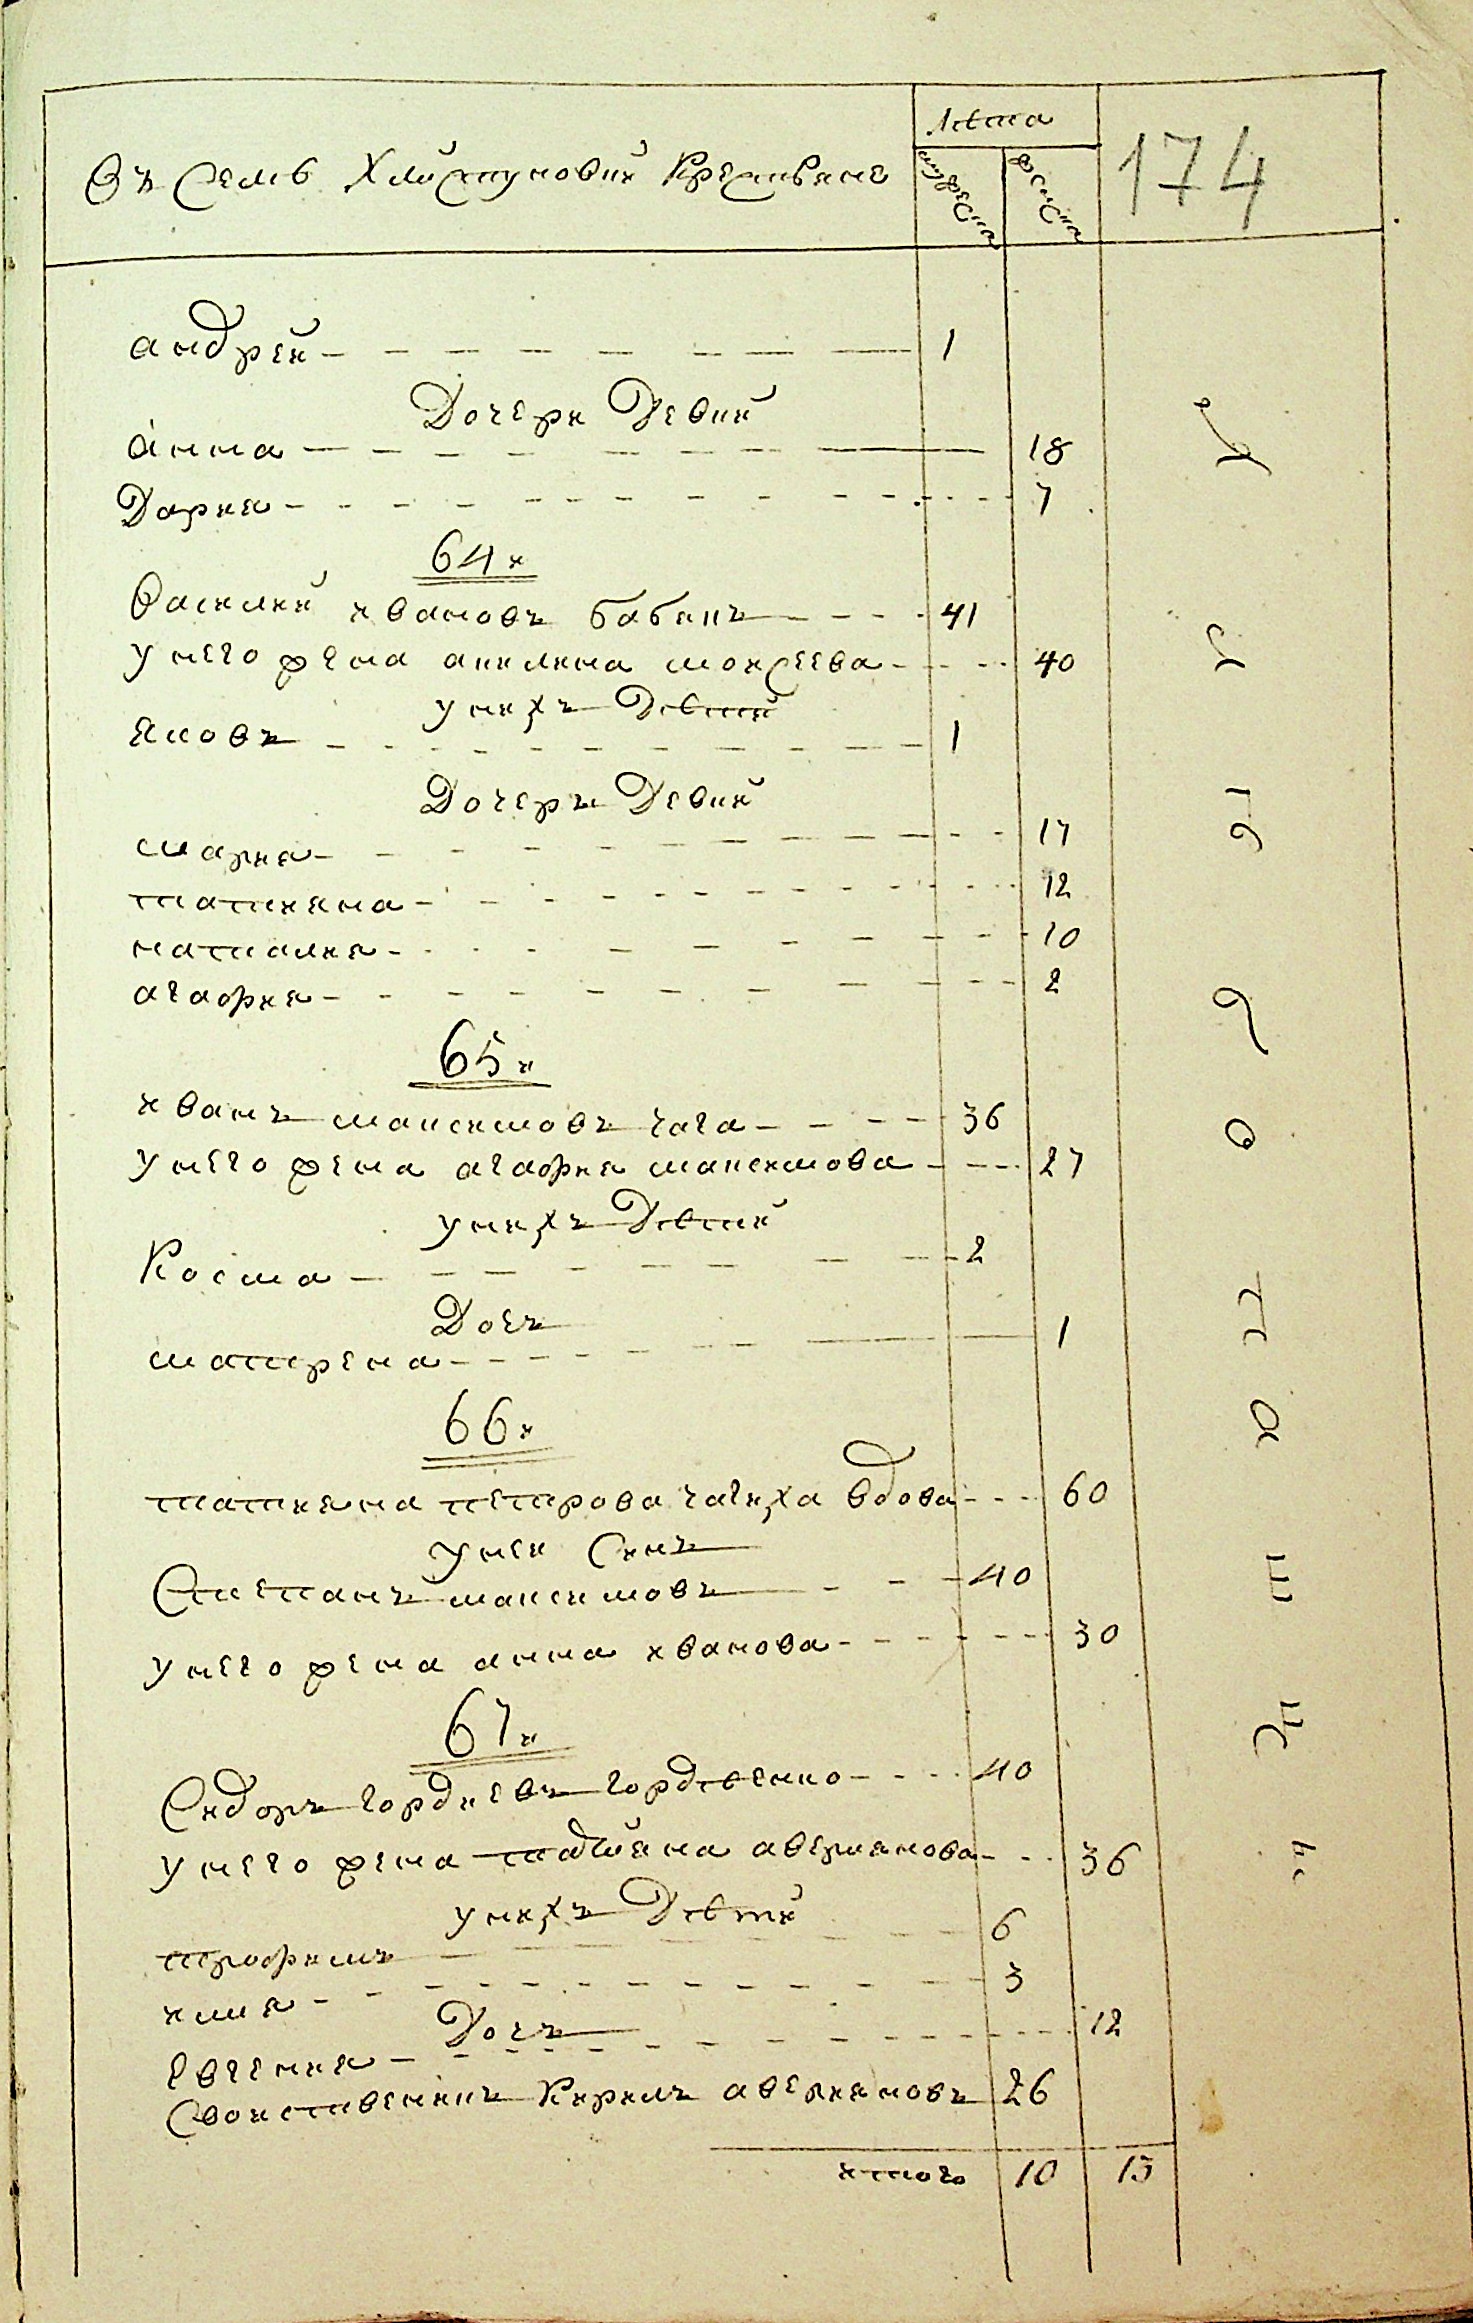 Въ Селѣ Хлистуновки Крестьяне
Лѣта
мужеска
женска
174
андрей 1
Дочери Девки
анна 18
Дария 7
64й
Василий Ивановъ бабакъ 41
унего жена акилина моисеева 40
унихъ Дѣтей
яковъ 1
Дочери Девки
мария 17
татияна 12
наталия 10
агафия 2
65й
Иванъ максимовъ чага 36
унего жена агафия максимова 27
унихъ Дѣтей
Косма 2
Дочь
матрена 1
66й
татияна петрова чагиха вдова 60
уней Синъ
Степанъ максимовъ 40
унего жена анна иванова 30
67й
Сидоръ гордѣевъ гордѣенко 40
унего жена татияна аверианова 36
унихъ Дѣтей
трофимъ 6
илия 3
Дочь
евгения 12
Свойственникъ Кирилъ аверияновъ 26
итого 10 13